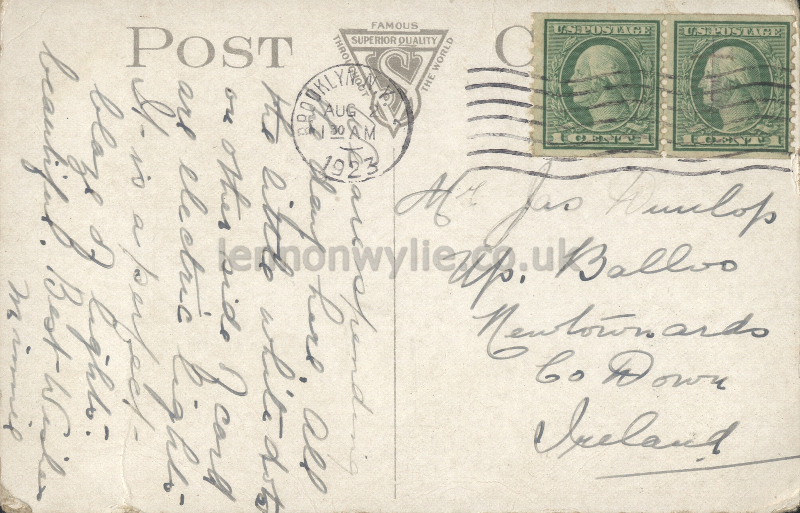 POST C
FAMOUS
SUPERIOR QUALITY
THROUGHOUT THE WORLD
S
BROOKLYN, N.Y.
AUG 2
1 30 AM
1923
U.S. POSTAGE
1 CENT 1
U.S. POSTAGE
1 CENT 1
are spending
a day here. All
the little white dots
on other side of card
are electric lights.
It is a perfect
blaze of lights.
beautiful. Best Wishes
Minnie
Mr Jas Dunlop
Up. Balloo
Newtownards
Co Down
Ireland
lennonwylie.co.uk